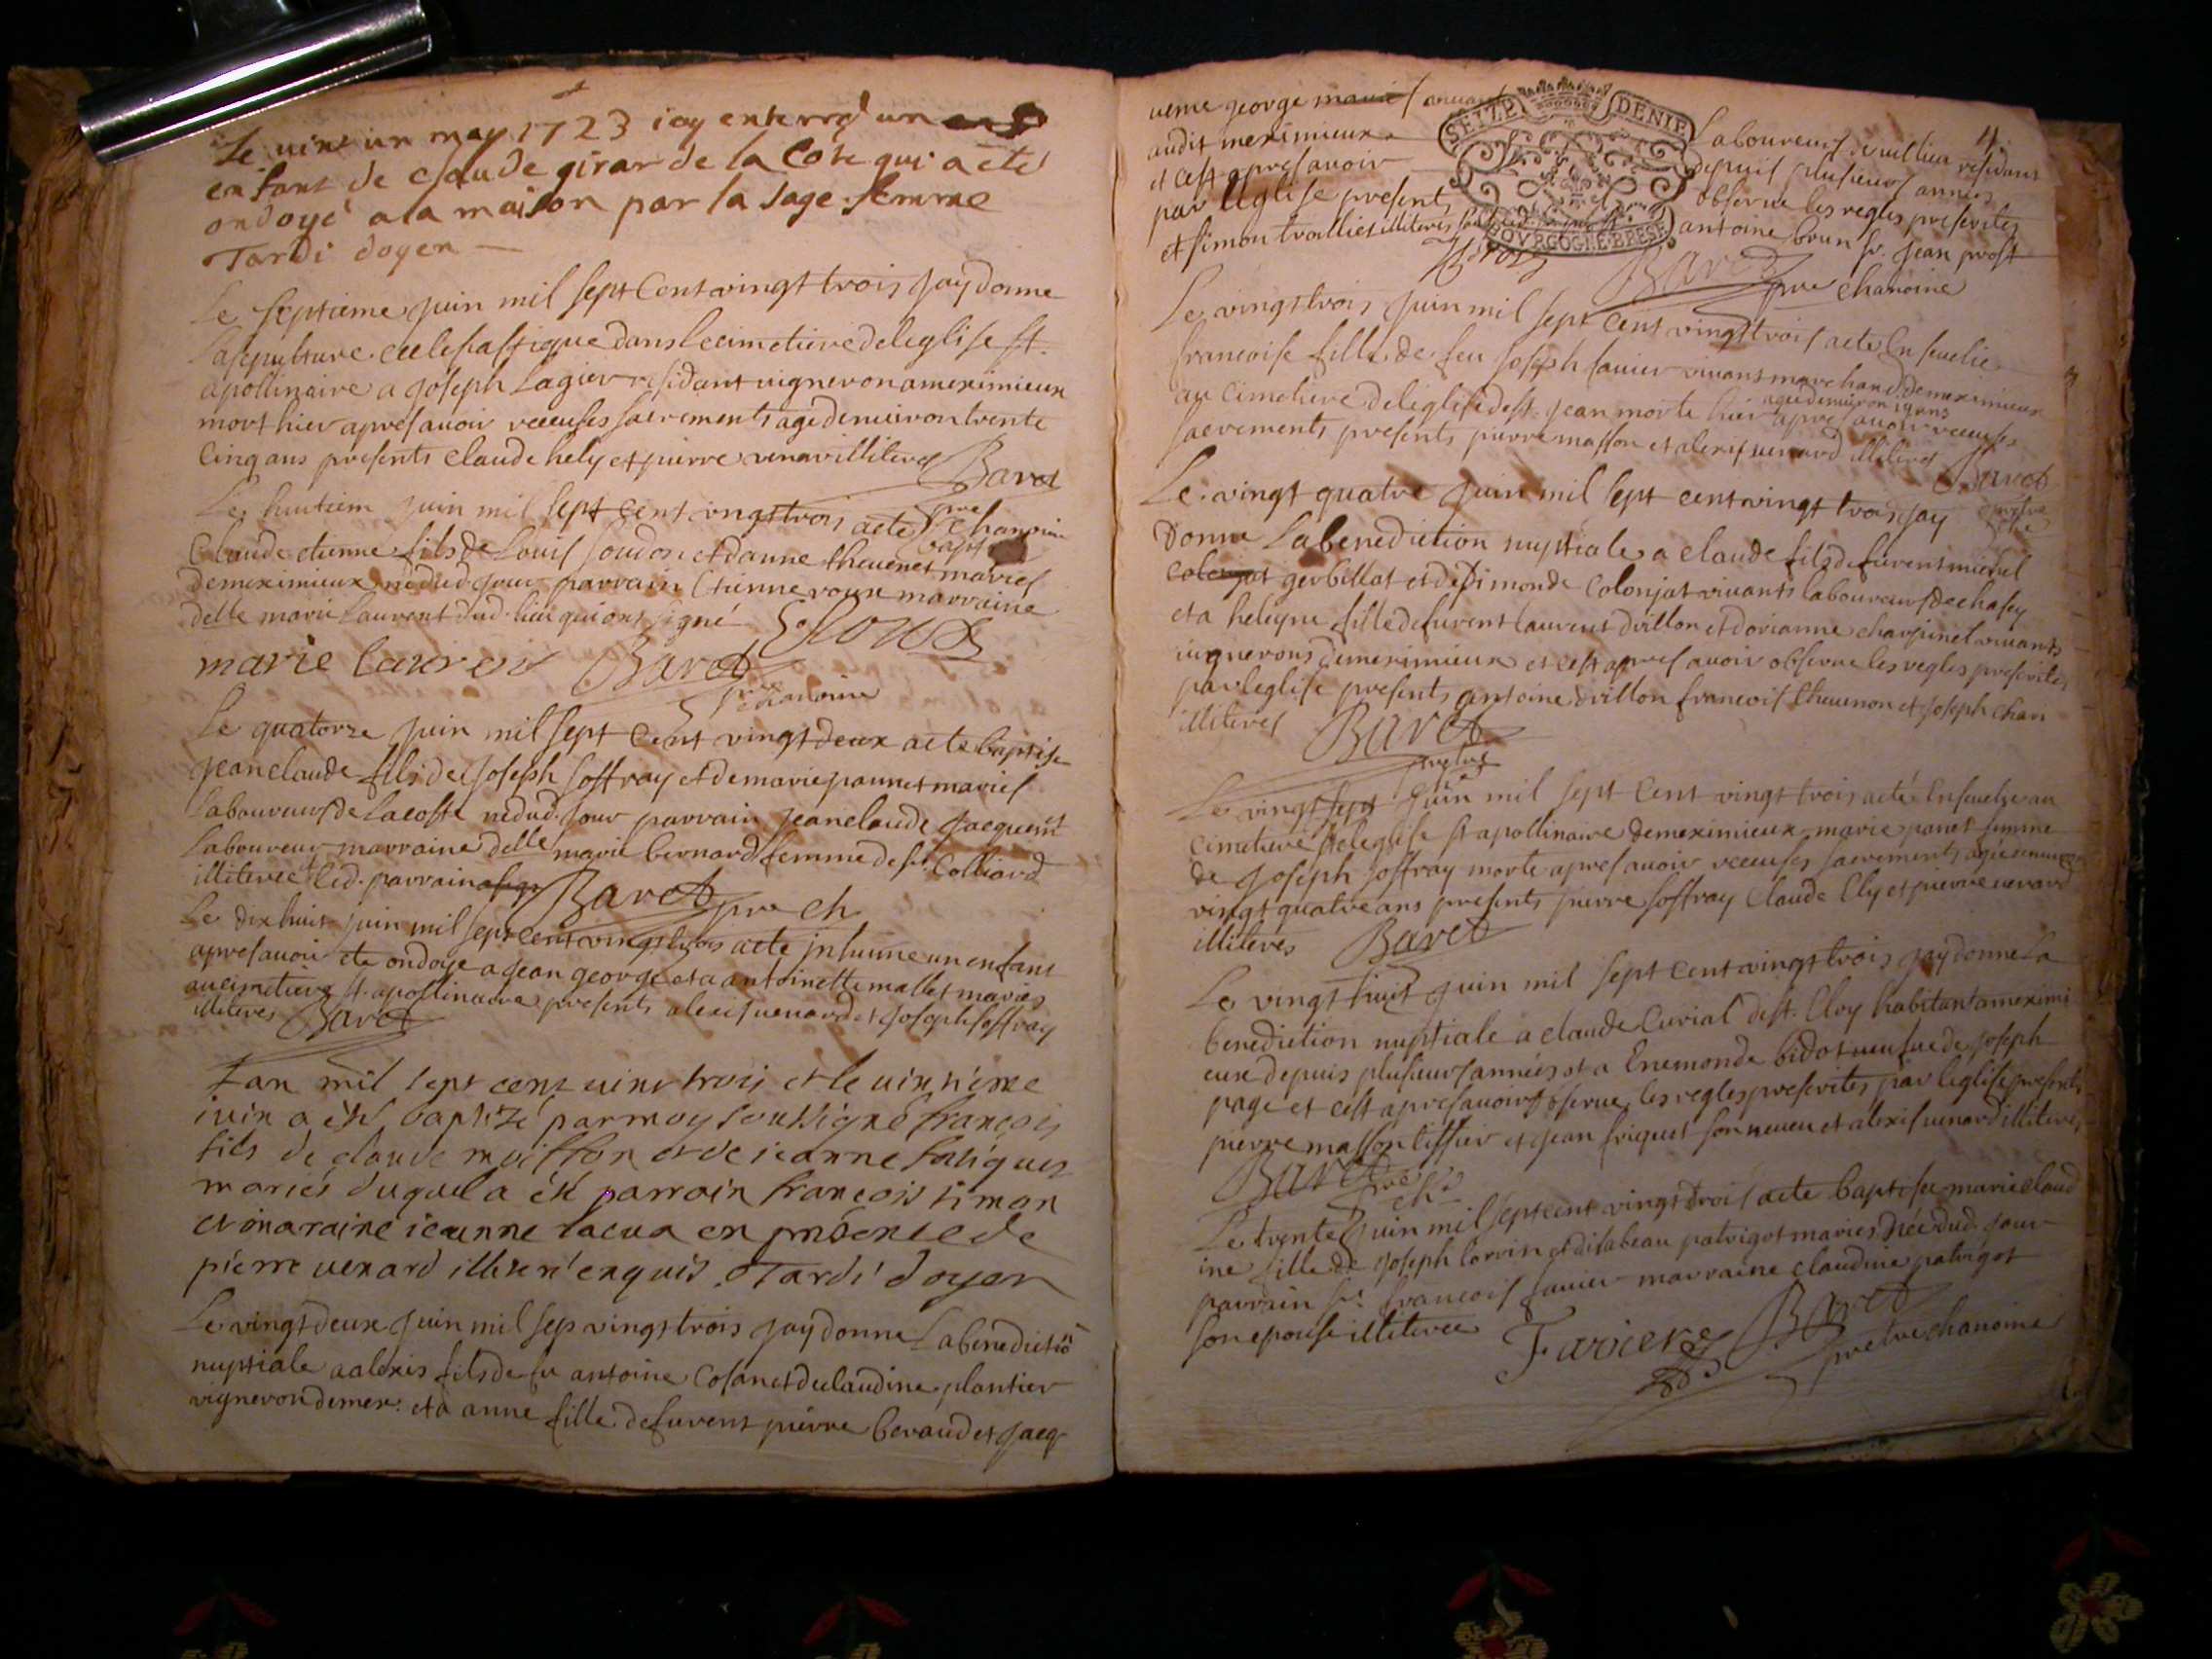 Le vint un may 1723 iay enterré un
enfant de claude girar de la Cote qui a ete
ondoyé a la maison par la sage femme
Tardi doyen
Le septieme juin mil sept Cent vingt trois jay donne
la sepulture ecclesiastique dans le cimetiere de leglise st.
apollinaire a joseph Lagier residant vigneron a meximieux
mort hier apres avoir receu ses sacrements age denviron trente
cinq ans presents claude hely et pierre venar illiteres Baret
pre chanoine
Le huitiem juin mil sept cent vingt trois a ete bapt
Claude etienne fils de Louis soudon et danne theuenet maries
de meximieux ne dud. jour parrain Etienne roux marraine
delle marie Laurent dud. lieu qui ont signé E roux
marie laurent Baret
pre chanoine
Le quatorze juin mil sept Cent vingt deux a ete baptise
jean claude fils de joseph soffray et de marie pannet maries
laboureurs de Lacoste ne dud. jour parrain jean claude jacquemt
laboureur marraine delle marie bernard femme de sr. Colliard
illiteree et led. parrain Baret pre ch
Le dix huit juin mil sept cent vingt trois a ete inhumé un enfant
apres avoir ete ondoye a jean george et a antoinette mallet maries
au cimetiere st. apollinaire presents alexis venard et joseph soffray
illiteres Baret
Lan mil sept cent vint trois et le vintieme
iuin a été baptizé par moy soussigné françois
fils de claude moisson et de ieanne
mariés duquel a été parroin françois simon
et maraine ieanne lacua en présence de
pierre venard illiteré enquis. Tardi doyen
Le vingt deux juin mil sep vingt trois jay donne La benedictiō
nuptiale a alexis fils de fu antoine Cosanet de claudine plantier
vigneron de mex: et a anne fille de furent pierre beraud et jacq
ueme george laboureurs de villieu residant
4.
audit meximieux depuis plusieurs annees
et cest apres avoir observe les regles prescrites
par leglise presents antoine brun sr. jean prost
et simon trollier illiteres
SEIZE DENIE
BOVRGOGNE·BRESSE
Prost Baret pre chanoine
Le vingt trois juin mil sept cent vingt trois a ete Ensevelie
francoise fille de feu joseph favier vivant marchand de meximieux
agee denviron 19 ans
au cimetiere de leglise de st. jean morte hier apres avoir receu ses
sacrements presents pierre masson et alexis venard illiteres Baret
Le vingt quatre juin mil sept cent vingt trois jay
donne La benediction nuptiale a claude fils de furent michel
colonjat gerbillat et de simonde Colonjat vivants laboureurs de chasey
et a heleyne fille de furent laurent drillon et dorianne charpinel vivants
vignerons de meximieux et cest apres avoir observe les regles prescrites
par leglise presents antoine drillon francois theuenon et joseph chari
illiteres Baret
prestre
Le vingt sept juin mil sept Cent vingt trois a eté Ensevelie au
cimetiere de leglise st apollinaire de meximieux marie panet femme
de joseph soffray morte apres avoir receu ses sacrements agee denviron
vingt quatre ans presents pierre soffray Claude Ely et pierre venard
illiteres Baret
Le vingt huit juin mil sept Cent vingt trois jay donne La
benediction nuptiale a claude Curial de st. Eloy habitant a meximi
eux depuis plusieurs années et a Enemonde bidot veufve de joseph
page et cest apres avoir observe les regles prescrites par leglise presents
pierre masson tissier et jean friquet son neveu et alexis venard illiteres
Baret pre ch
Le trente juin mil sept cent vingt trois a ete baptisee marie claud
ine fille de joseph lorrin et disabeau patrigot maries née dud. jour
parrain sr. francois favier marraine claudine patrigot
son epouse illiteree Favier Baret
pretre chanoine